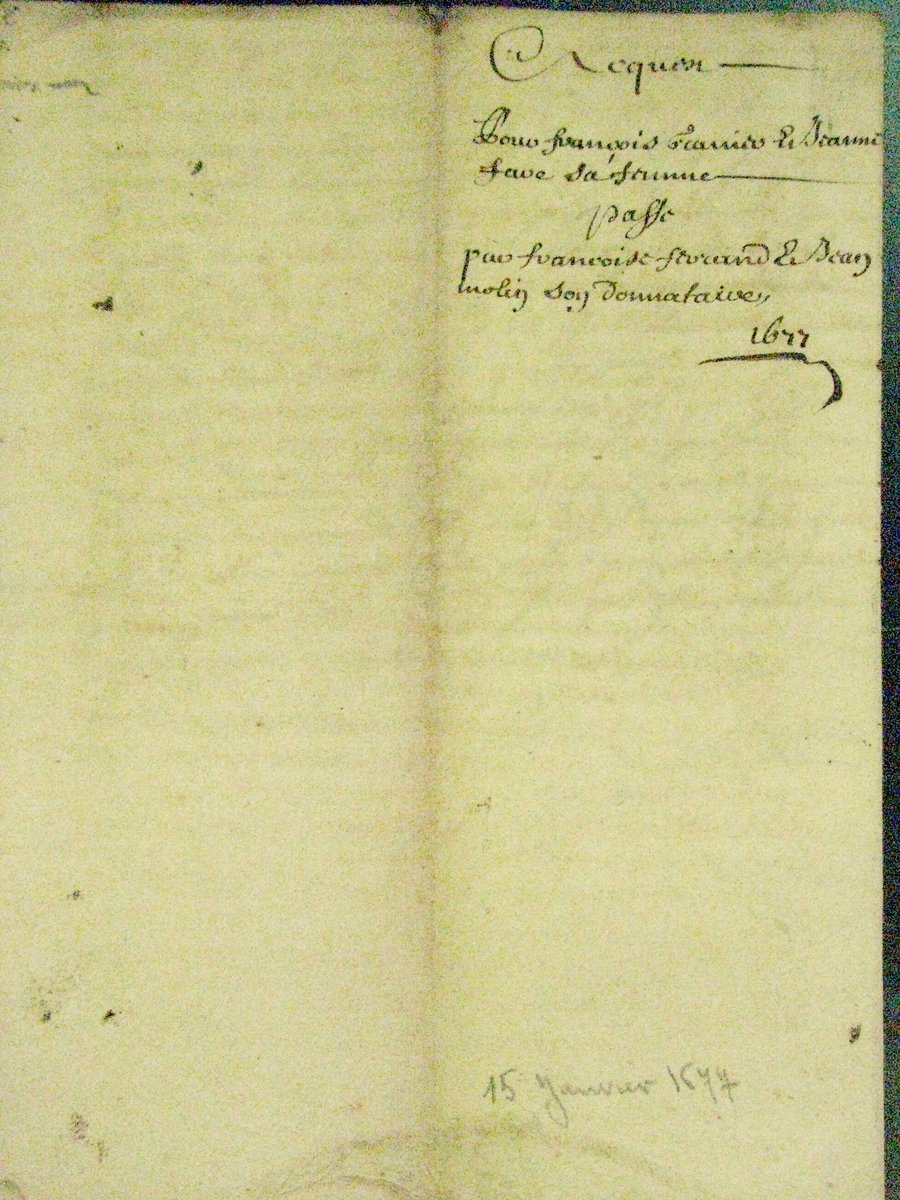 Acquest
Pour françois Garnier & Jeanne
fave sa femme
passe
par francoise ferrand & Jean
molin son donnataire,
1677
15 Janvier 1677